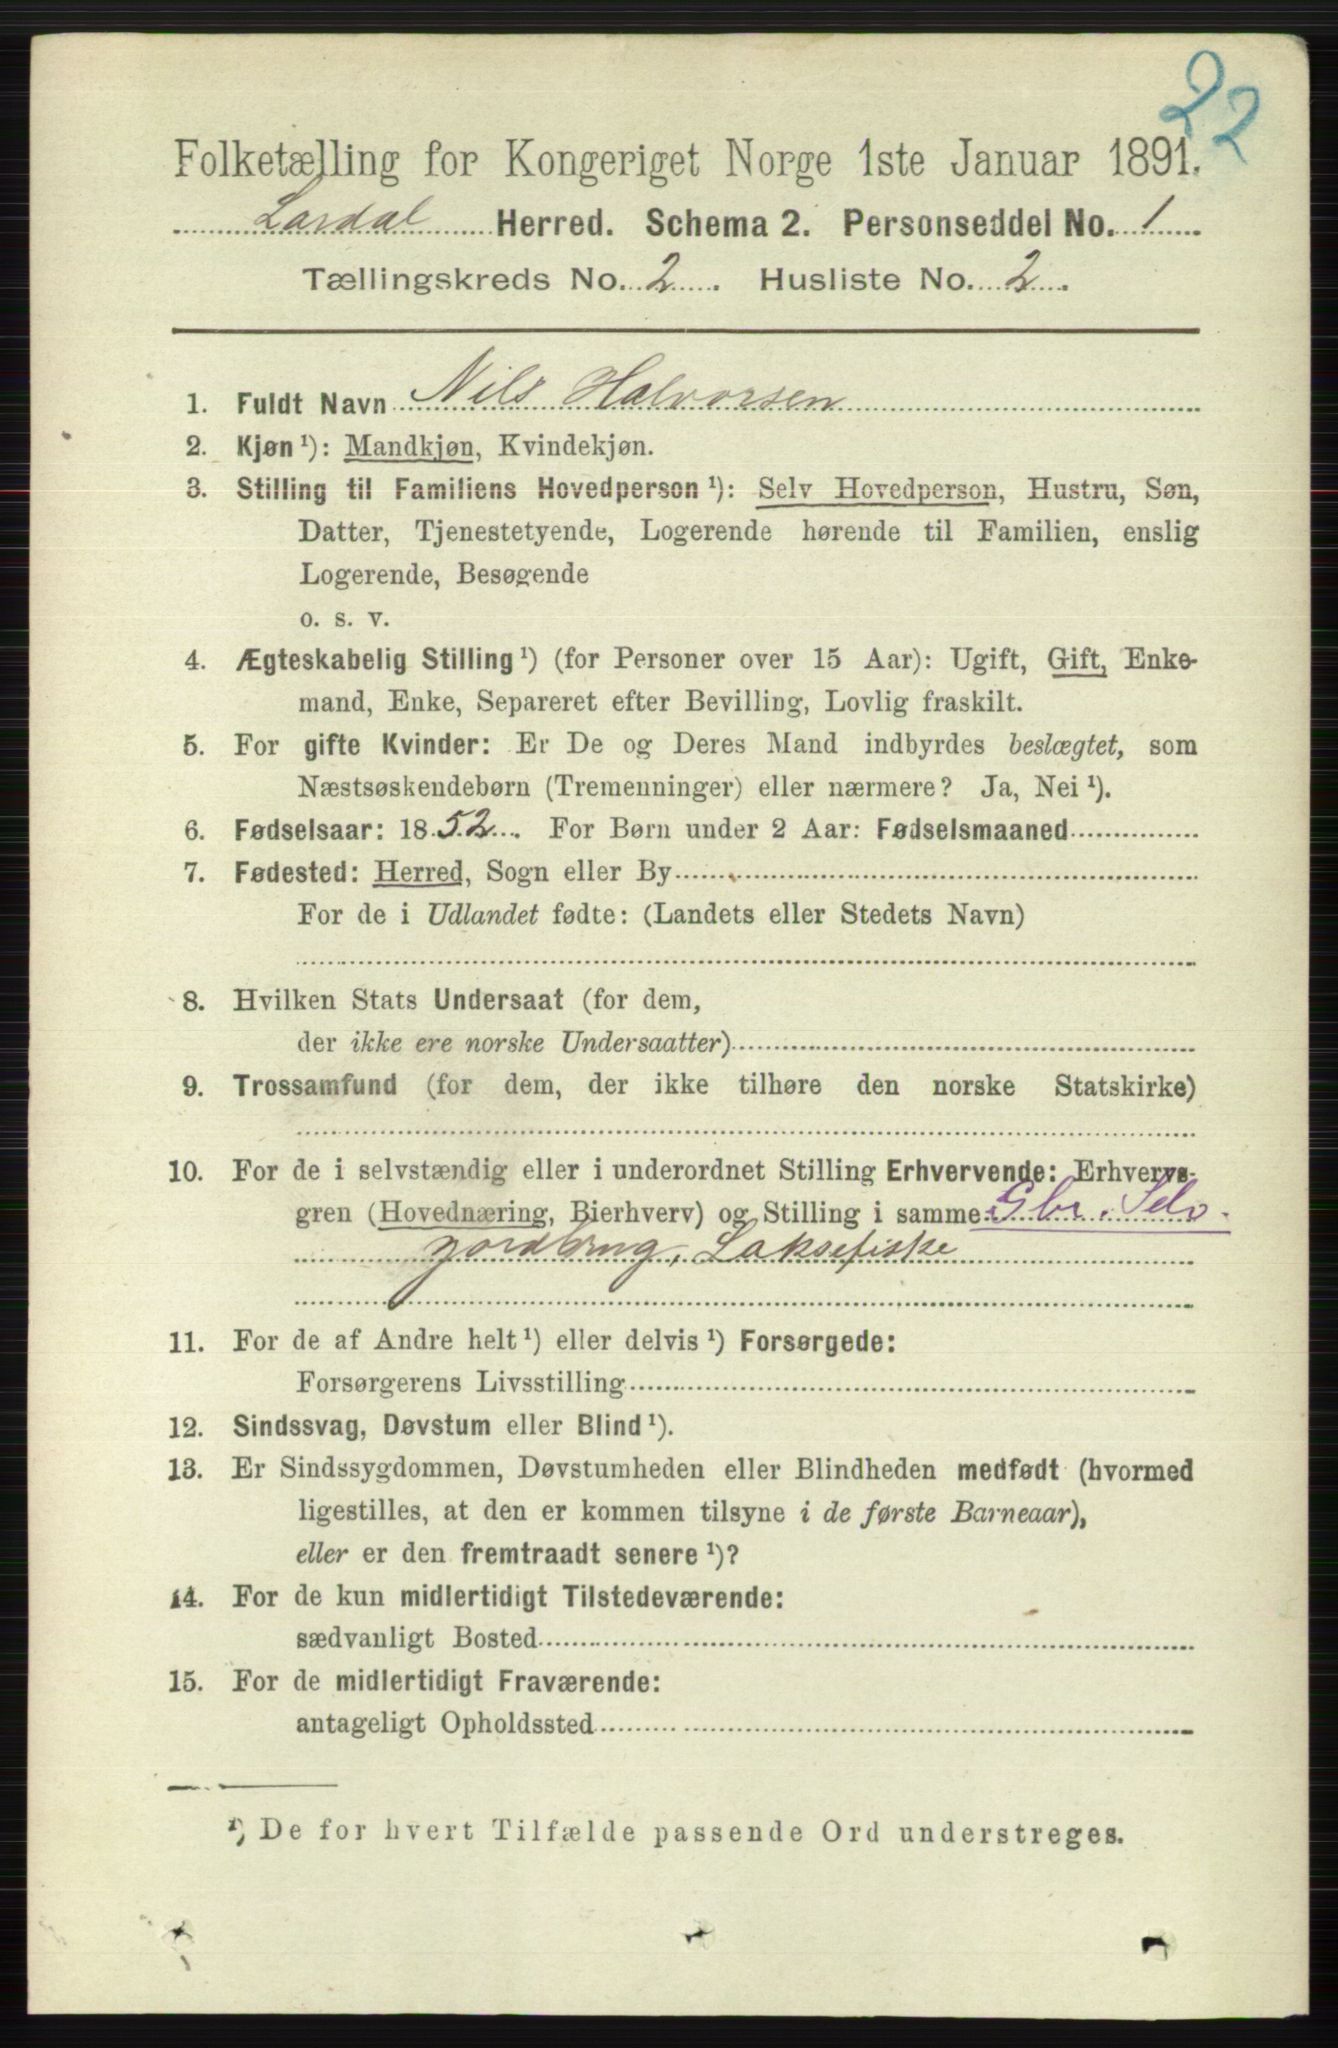 22
Folketælling for Kongeriget Norge 1ste Januar 1891.
Lardal Herred. Schema 2. Personseddel No. 1
Tællingskreds No. 2. Husliste No. 2.
1. Fuldt Navn Nils Halvorsen
2. Kjøn¹): Mandkjøn, Kvindekjøn.
3. Stilling til Familiens Hovedperson¹): Selv Hovedperson, Hustru, Søn,
Datter, Tjenestetyende, Logerende hørende til Familien, enslig
Logerende, Besøgende
o. s. v.
4. Ægteskabelig Stilling¹) (for Personer over 15 Aar): Ugift, Gift, Enke-
mand, Enke, Separeret efter Bevilling, Lovlig fraskilt.
5. For gifte Kvinder: Er De og Deres Mand indbyrdes beslægtet, som
Næstsøskendebørn (Tremenninger) eller nærmere? Ja, Nei¹).
6. Fødselsaar: 1852. For Børn under 2 Aar: Fødselsmaaned
7. Fødested: Herred, Sogn eller By
For de i Udlandet fødte: (Landets eller Stedets Navn)
8. Hvilken Stats Undersaat (for dem,
der ikke ere norske Undersaatter)
9. Trossamfund (for dem, der ikke tilhøre den norske Statskirke)
10. For de i selvstændig eller i underordnet Stilling Erhvervende: Erhvervs-
gren (Hovednæring, Bierhverv) og Stilling i samme Gbr. Selv.
jordbrug, Laksefiske
11. For de af Andre helt¹) eller delvis¹) Forsørgede:
Forsørgerens Livsstilling
12. Sindssvag, Døvstum eller Blind¹).
13. Er Sindssygdommen, Døvstumheden eller Blindheden medfødt (hvormed
ligestilles, at den er kommen tilsyne i de første Barneaar),
eller er den fremtraadt senere¹)?
14. For de kun midlertidigt Tilstedeværende:
sædvanligt Bosted
15. For de midlertidigt Fraværende:
antageligt Opholdssted
¹) De for hvert Tilfælde passende Ord understreges.